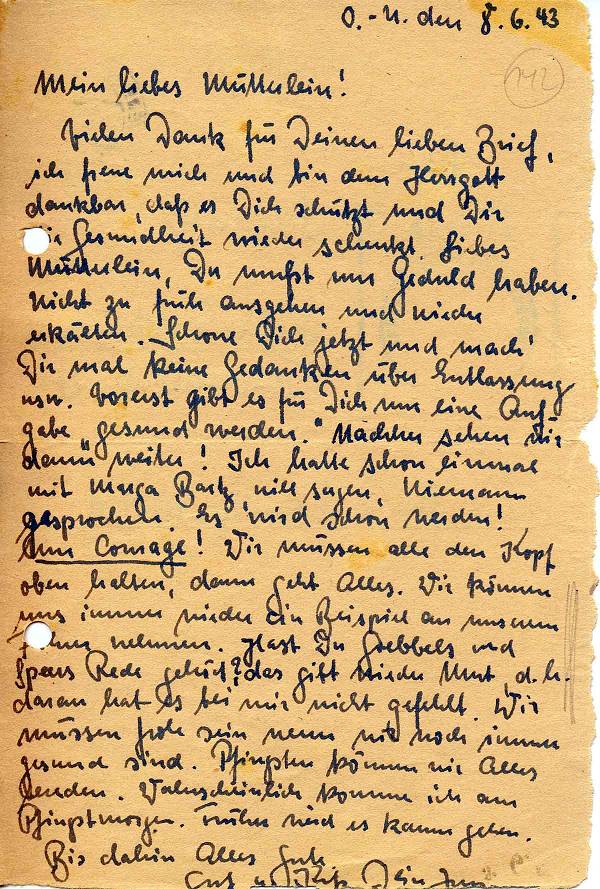 O.-U. den 8.6.43
142
Mein liebes Mütterlein!
Vielen Dank für Deinen lieben Brief,
ich freue mich und bin dem Herrgott
dankbar, daß es Dich schützt und Dir
die Gesundheit wieder schenkt. Liebes
Mütterlein, Du mußt nun Geduld haben.
Nicht zu früh ausgehen und wieder
erkälten. Schone Dich jetzt und mach'
Dir mal keine Gedanken über Entlassung
usw. Vorerst gibt es für Dich nur eine Auf-
gabe "gesund werden." Nachher sehen wir
dann weiter! Ich hatte schon einmal
mit Marga Bartz will sagen, Niemann
gesprochen. Es wird schon werden!
Nur Courage! Wir müssen alle den Kopf
oben halten, dann geht Alles. Wir können
uns immer wieder ein Beispiel an unserem
nehmen. Hast Du Goebbels und
Speers Rede gehört? das gibt wieder Mut, d.h.
daran hat es bei mir nicht gefehlt. Wir
müssen froh sein wenn wir noch immer
gesund sind. Pfingsten können wir Alles
. Wahrscheinlich komme ich am
Pfingstmorgen. Früher wird es kaum gehen.
Bis dahin Alles Gute
Dein